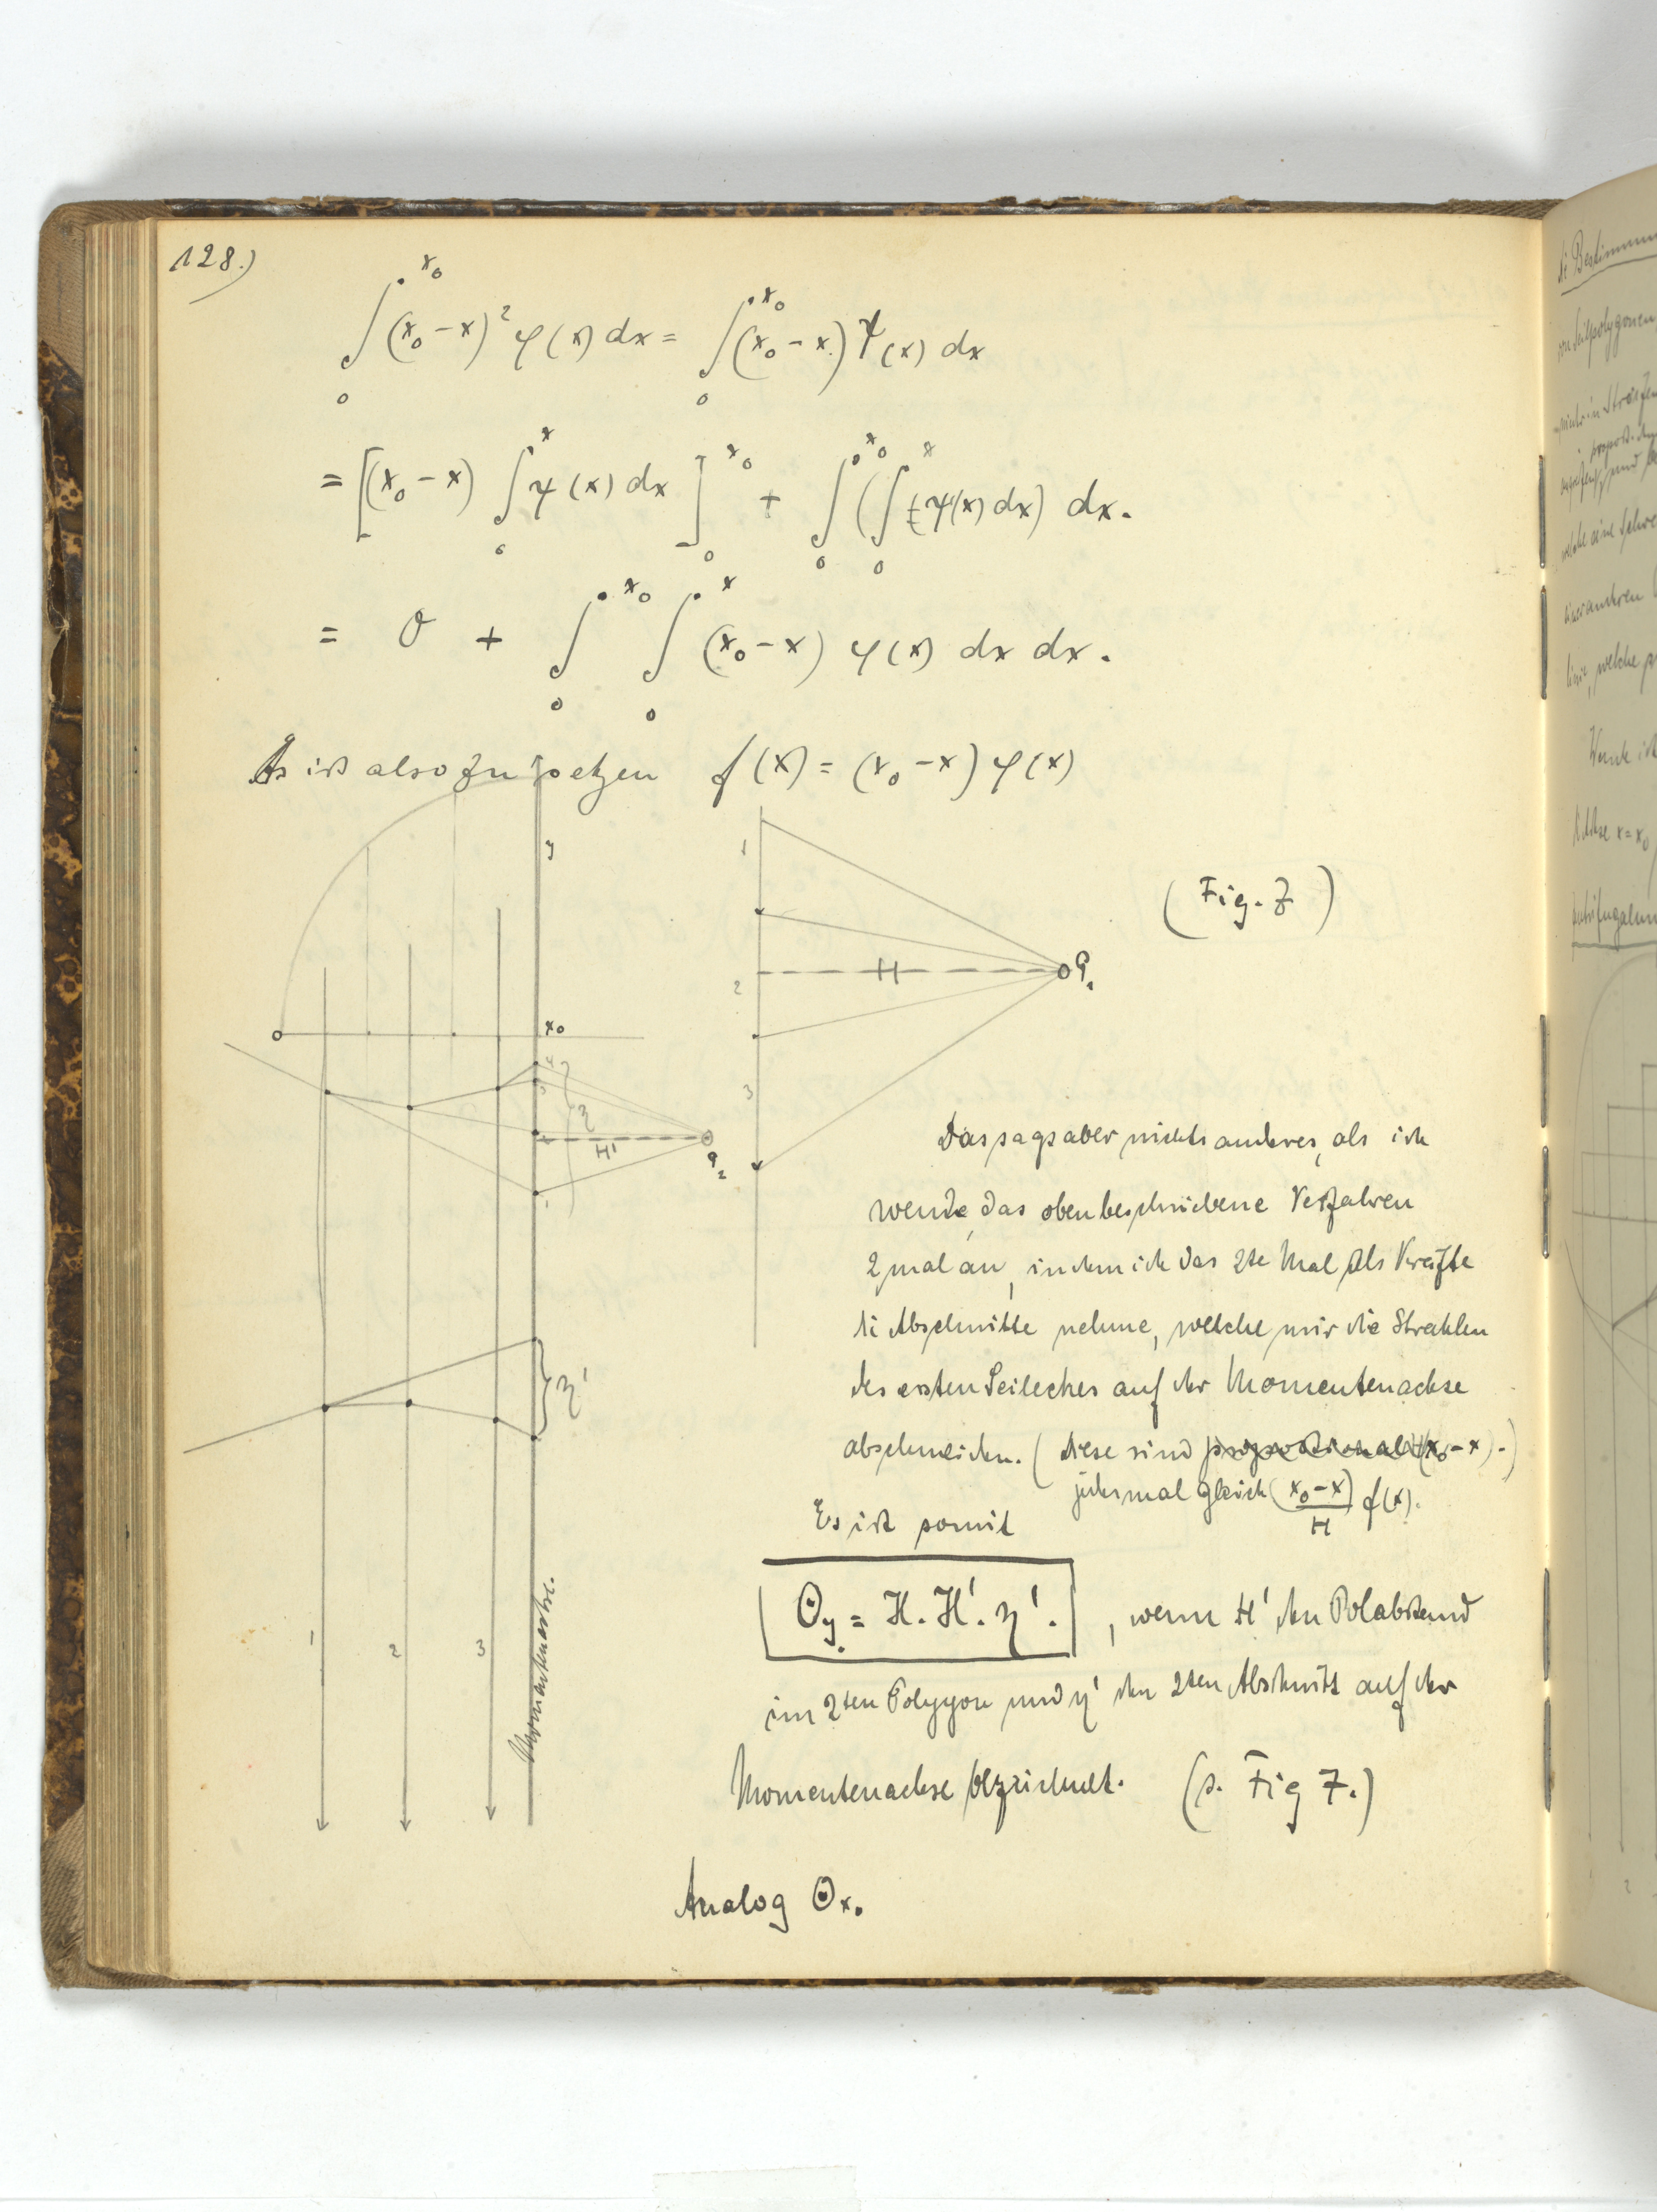 128.)
∫₀^{x₀} (x₀ - x)² φ(x) dx = ∫₀^{x₀} (x₀ - x) ψ(x) dx
= [(x₀ - x) ∫₀^x ψ(x) dx]₀^{x₀} + ∫₀^{x₀} (∫₀^x ψ(x) dx) dx.
= 0 + ∫₀^{x₀} ∫₀^x (x₀ - x) φ(x) dx dx.
Es ist also zu setzen f(x) = (x₀ - x) φ(x)
y
1
(Fig. 7)
H
P₁
2
x₀
3
η
H'
P₂
Das sagt aber nichts anderes, als ich
wende das oben beschriebene Verfahren
2 mal an, indem ich das 2te Mal als Kräfte
die Abschnitte nehme, welche mir die Strahlen
des ersten Seileckes auf der Momentenachse
η'
abschneiden. (diese sind proportional (x₀ - x).)
jedesmal gleich (x₀ - x)/H f(x).
Es ist somit
Θy = H. H'. η'. , wenn H' den Polabstand
1
2
3
Momentenachse.
im 2ten Polygon und η' den 2ten Abschnitt auf der
Momentenachse bezeichnet. (s. Fig 7.)
Analog Θx.